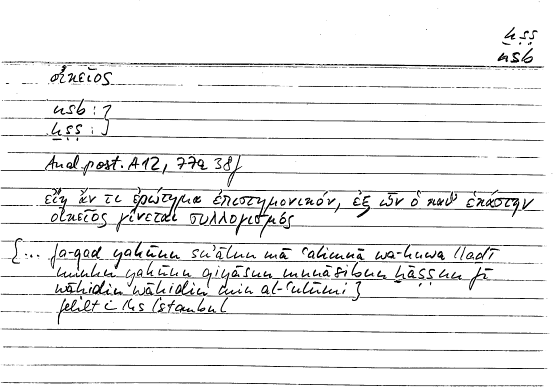 ḫṣṣ
nsb
οἰκεῖος
nsb : }
ḫṣṣ : }
Anal. post. A 12, 77a 38f
εἴη ἄν τι ἐρώτημα ἐπιστημονικόν, ἐξ ὧν ὁ καθ' ἑκάστην
οἰκεῖος γίνεται συλλογισμός
{... fa-qad yakūnu su'ālun mā ʿilmīyun wa-huwa lladī
minhu yakūnu qiyāsun munāsibun ḫāṣṣun fī
wāḥidin wāḥidin min al-ʿulūmi }
fehlt i Hs Istanbul